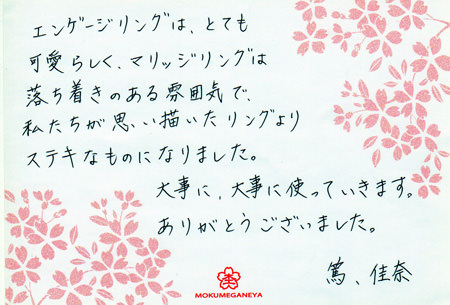 エンゲージリングは、とても
可愛らしく、マリッジリングは
落ち着きのある雰囲気で、
私たちが思い描いたリングより
ステキなものになりました。
大事に、大事に使っていきます。
ありがとうございました。
篤、佳奈
MOKUMEGANEYA